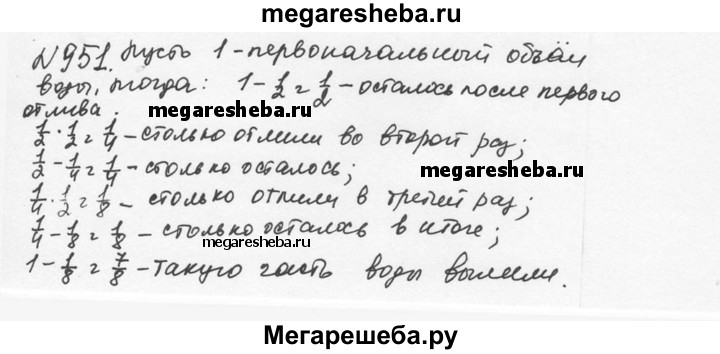 megaresheba.ru
N951. Пусть 1 - первоначальный объём
воды, тогда: 1 - 1/2 = 1/2 - осталось после первого
отлива.
megaresheba.ru
1/2 · 1/2 = 1/4 - столько отлили во второй раз;
1/2 - 1/4 = 1/4 - столько осталось;
megaresheba.ru
1/4 · 1/2 = 1/8 - столько отлили в третий раз;
1/4 - 1/8 = 1/8 - столько осталось в итоге;
megaresheba.ru
1 - 1/8 = 7/8 - такую часть воды вылили.
Мегарешеба.ру